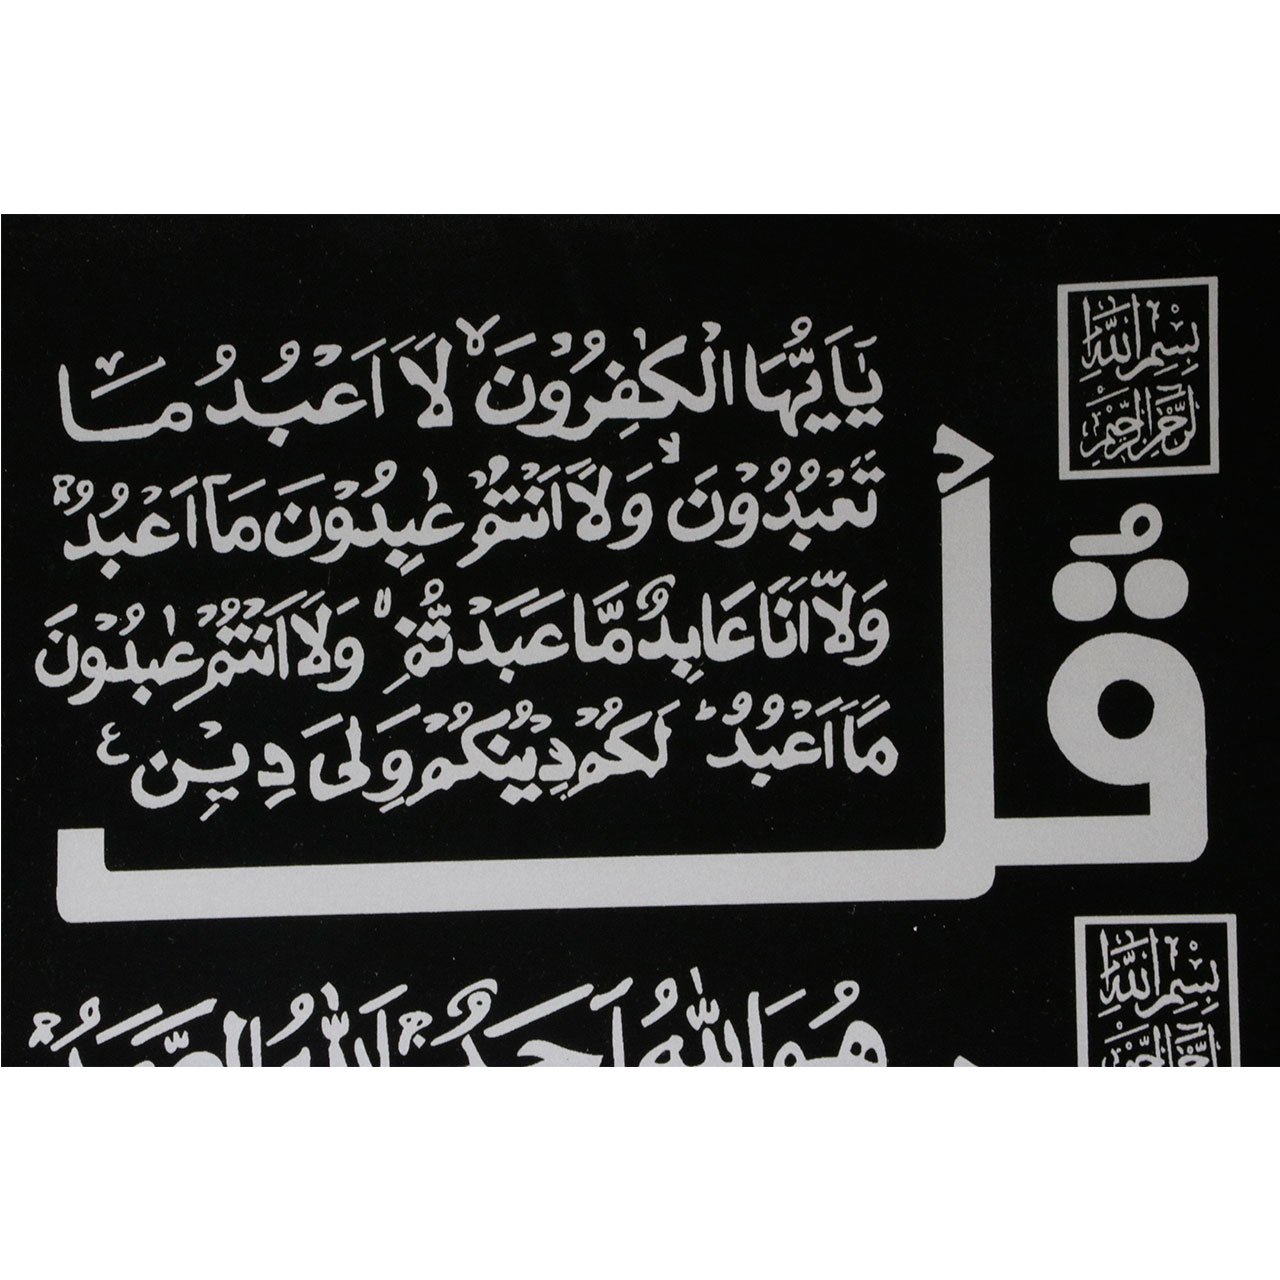 بِسْمِ اللّٰهِ
الرَّحْمٰنِ الرَّحِيْمِ
قُلْ
يٰٓاَيُّهَا الْكٰفِرُوْنَ ۙ لَاۤ اَعْبُدُ مَا
تَعْبُدُوْنَ ۙ وَلَاۤ اَنْتُمْ عٰبِدُوْنَ مَاۤ اَعْبُدُ ۚ
وَلَاۤ اَنَا عَابِدٌ مَّا عَبَدْتُّمْ ۙ وَلَاۤ اَنْتُمْ عٰبِدُوْنَ
مَاۤ اَعْبُدُ ؕ لَكُمْ دِيْنُكُمْ وَلِيَ دِيْنِ ع
بِسْمِ اللّٰهِ
الرَّحْمٰنِ الرَّحِيْمِ
هُوَ اللّٰهُ اَحَدٌ ۚ اَللّٰهُ الصَّمَدُ ۚ